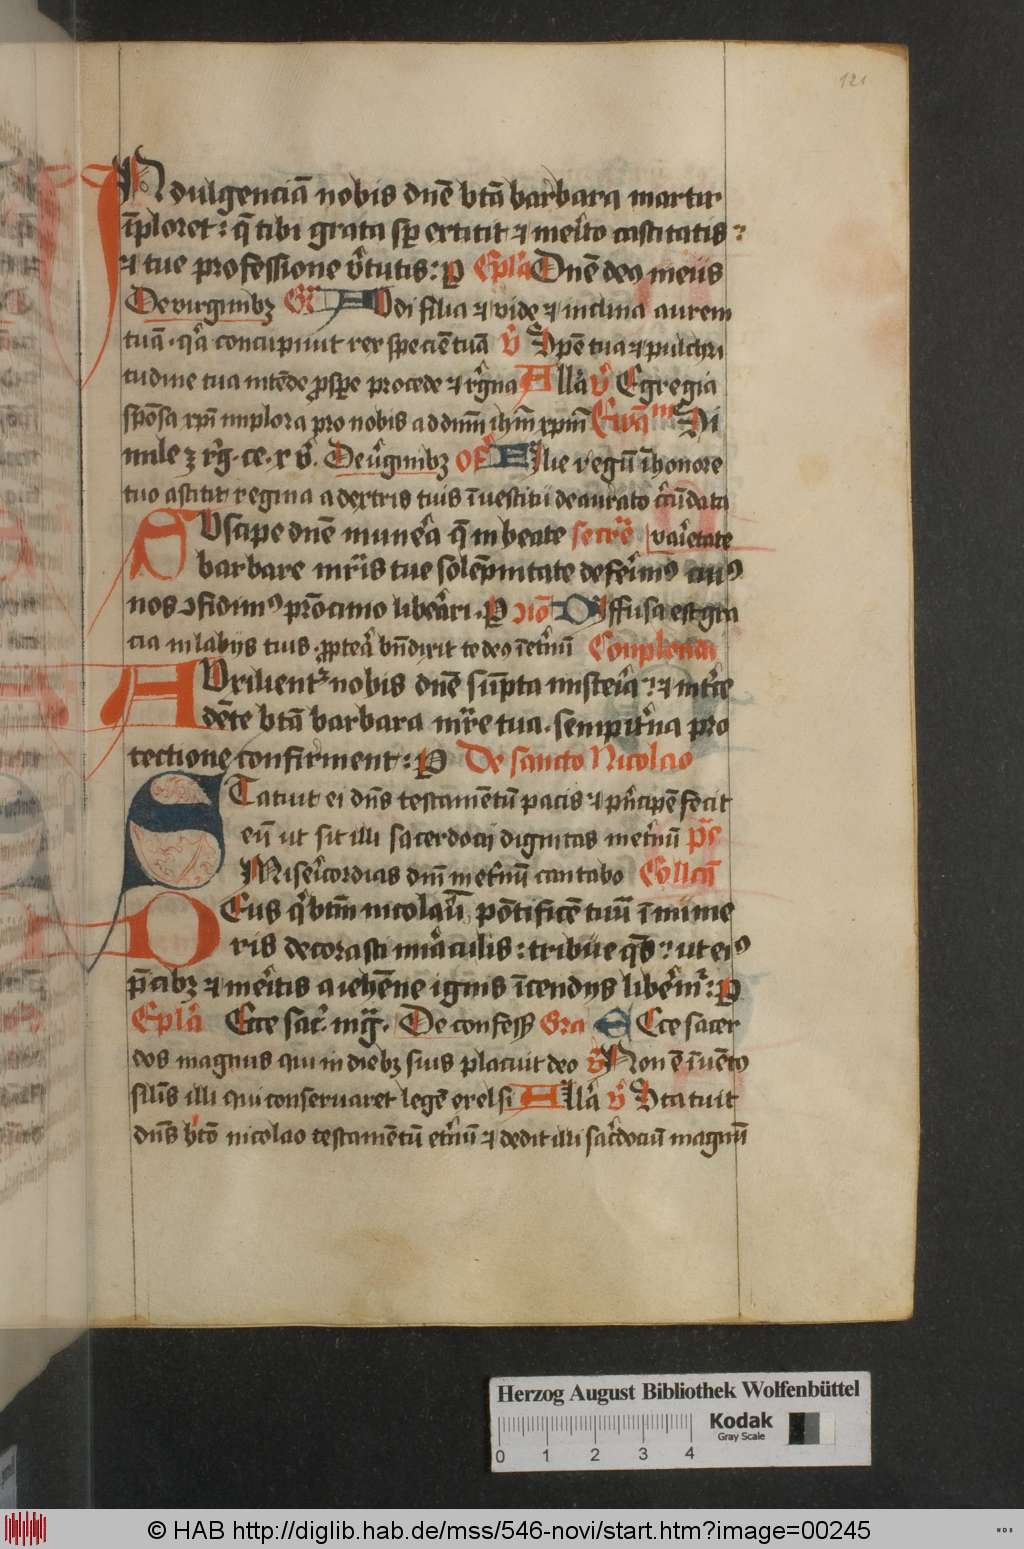 121
INdulgenciā nobis dn̄e btā barbara martir
īploret: q̄ tibi grata sp̄ extitit ⁊ meͥto castitatis:
⁊ tue professione vͥtutis: P Epl̄a Dn̄e deo meus
De virginibꝫ Gͬ Audi filia ⁊ vide ⁊ inclina aurem
tuā. qͣ concupiuit rex speciē tuā v̄ Spē tua ⁊ pulchri
tudine tua intēde ꝓspe procede ⁊ rͤgna All̄a v̄ Egregia
spōsa xp̄i implora pro nobis ad dn̄m ih̄m xp̄m Ewāᵐ Si
mile ꝫ rͤg. ce. x v̄. De vͥginibꝫ Of̄ Filie regū ī honore
tuo astitit regina a dextris tuis ī uestitu deaurato cͥcūdata
SUscipe dn̄e munerͣ q̄ in beate secrͤ varͥetate
barbare mr̄is tue solēpnitate deferimꝰ cuiꝰ
nos ↄfidimꝰ prōcinio liberͣri. P ↄio Diffusa est gra
cia in labijs tuis. ꝓpterͣ bn̄dixit te deo ī etͤnū Conplenda
AUxilientʳ nobis dn̄e sūpta misterͥa: ⁊ intͤce
dēte btā barbara mr̄e tua. sempitͤna pro
tectione confirment: P De sancto Nicolao
STatuit ei dn̄s testamētū pacis ⁊ pͥncipē fecit
eū ut sit illi sacerdocij dignitas in etͤnū ps̄
Miserͥcordias dn̄i in etͤnū cantabo Coll̄cā
DEus qͥ btm̄ nicolaū pōtificē tuū īnume
ris decorasti mirͣculis: tribue qs̄: ut eiꝰ
p̄cibꝫ ⁊ merͥtis a iehēne ignis īcendijs liberͤmʳ: P
Epl̄a Ecce sacͬ. mg̊. De confess̄ Gra Ecce sacer
dos magnus qui in diebꝫ suis placuit deo v̄ Non ē īuēto
silīs illi qui conseruaret legē excelsi All̄a v̄ Statuit
dn̄s btō nicolao testamētū etͤnū ⁊ dedit illi sacͬdociū magnū
Herzog August Bibliothek Wolfenbüttel
Kodak
Gray Scale
0 1 2 3 4
© HAB http://diglib.hab.de/mss/546-novi/start.htm?image=00245